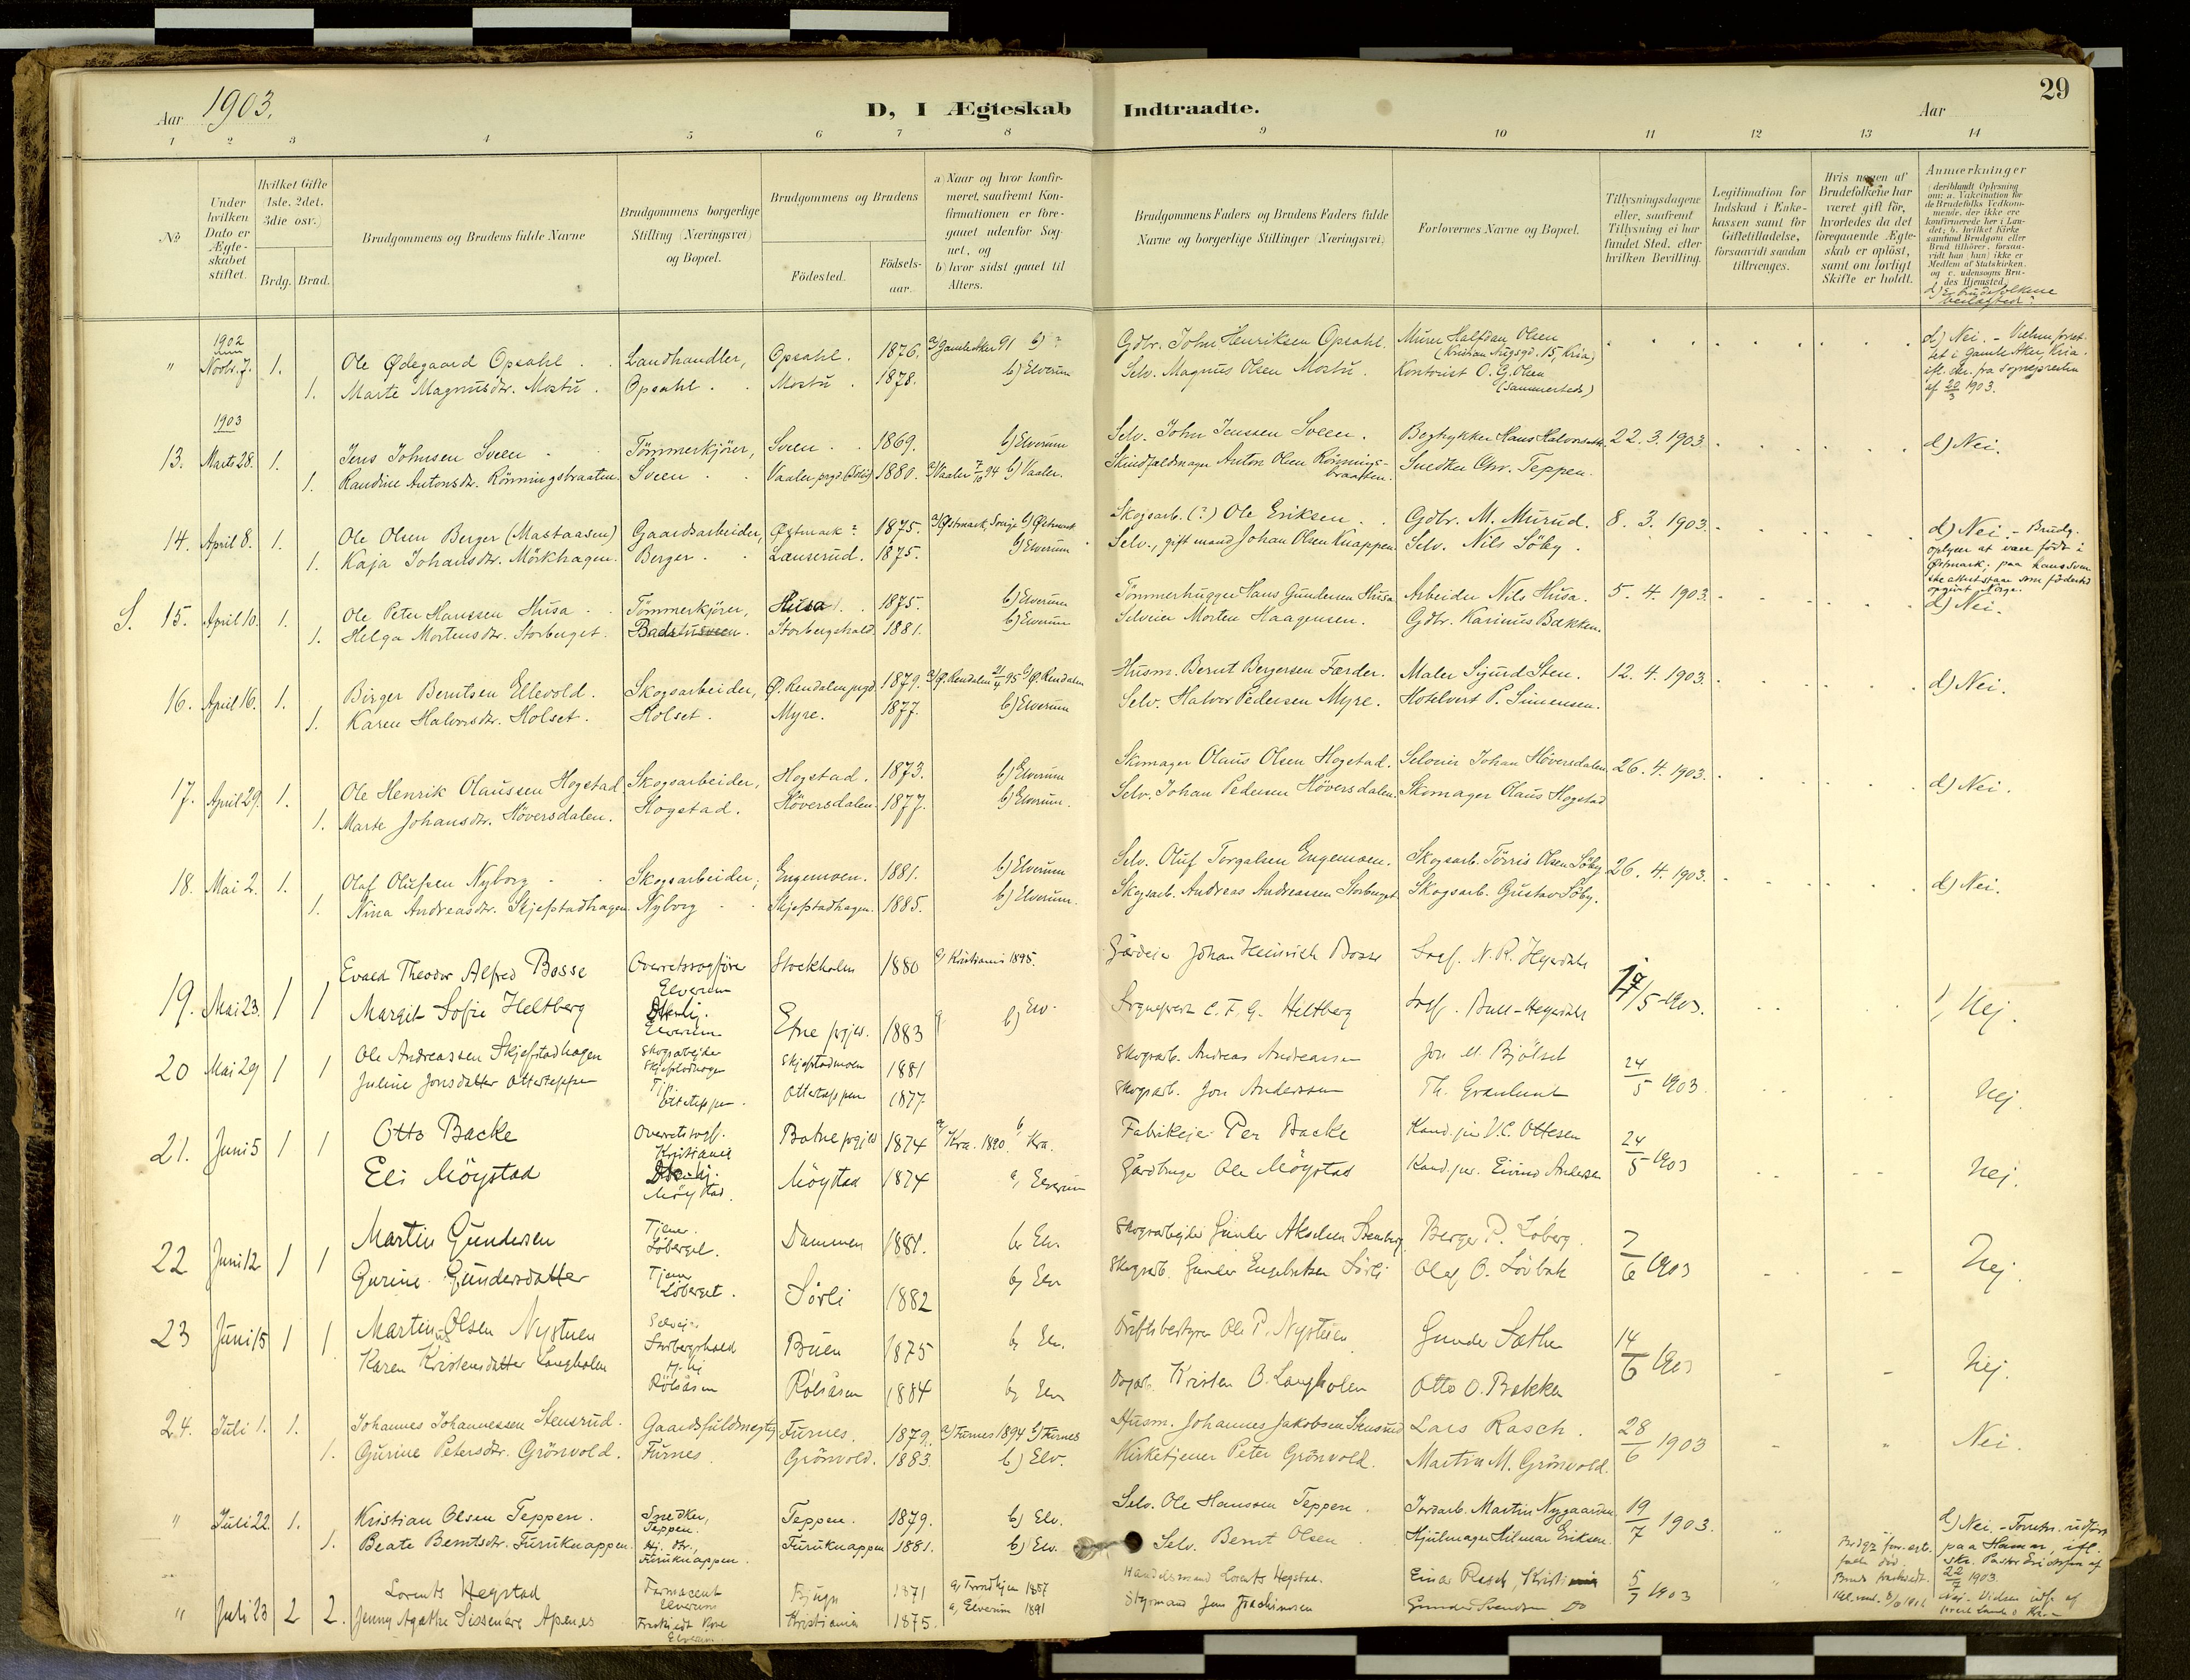 Aar 1903.
D, I Ægteskab Indtraadte.
Aar
29
1 2 3 4 5 6 7 8 9 10 11 12 13 14
No
Under hvilken Dato er Ægteskabet stiftet.
Hvilket Gifte (1ste, 2det, 3die osv.)
Brdg. Brud.
Brudgommens og Brudens fulde Navne
Brudgommens borgerlige Stilling (Næringsvei) og Bopæl.
Brudgommens og Brudens
Födested.
Födsels-aar.
a) Naar og hvor konfirmeret, saafremt Konfirmationen er foregaaet udenfor Sognet, og
b) hvor sidst gaaet til Alters.
Brudgommens Faders og Brudens Faders fulde Navne og borgerlige Stillinger (Næringsvei)
Forlovernes Navne og Bopæl.
Tillysningsdagene eller, saafremt Tillysning ei har fundet Sted, efter hvilken Bevilling.
Legitimation for Indskud i Enkekassen samt for Giftetilladelse, forsaavidt saadan tiltrænges.
Hvis nogen af Brudefolkene har været gift för, hvorledes da det foregaaende Ægteskab er oplöst, samt om lovligt Skifte er holdt.
Anmærkninger
(deriblandt Oplysning om: a. Vakcination for de Brudefolks Vedkommende, der ikke ere konfirmerede her i Landet; b. hvilket Kirkesamfund Brudgom eller Brud tilhörer, forsaavidt han (hun) ikke er Medlem af Statskirken, og c. udensogns Brudes Hjemsted.)
d) er brudefolkene beslægtede?
1902
" Novbr. 7. 1. Ole Ødegaard Opsahl. Landhandler, Opsahl. 1876. a) Gamle Aker 91 b) ? Gdbr. John Henriksen Opsahl. Murer Halfdan Olsen (Kristian Augsgd. 15, Kria) d) Nei. - Vielsen forrettet i Gamle Aker, Kria.
1. Marte Magnusdtr. Mostu. Opsahl. Mostu. 1878. b) Elverum Selv. Magnus Olsen Mostu. Kontorist O. G. Olsen (sammesteds) ifl. skr. fra Sognepresten af 20/3 1903.
1903
13. Marts 28. 1. Jens Johnsen Sveen Tömmerkjörer, Sveen. 1869. b) Elverum Selv. John Jenssen Sveen. Bogtrykker Hans 22.3.1903. d) Nei.
1. Randine Antonsdr. Rönningsbraaten. Sveen. Vaaler prgd. 1880. a) Vaaler 7/10 94 b) Vaaler. Skindfældmager Anton Olsen Rönningsbraaten. Snedker Chr. Teppen.
14. April 8. 1. Ole Olsen Berger (Mastaasen) Gaardsarbeider, Østmark? 1875. a) Østmark, Sverige b) Østmark Skogsarb. (?) Ole Eriksen. Gdbr. M. Murud. 8.3.1903. d) Nei. - Brudg. oplyser at være född i Østmark; paa hans svenske attest staar som födested opgivet Norge.
1. Kaja Johansdr. Mörkhagen. Berger. Lauserud. 1875. b) Elverum Selv., gift mand Johan Olsen Knappen. Selv. Nils Söby.
S. 15. April 10. 1. Ole Peter Hanssen Husa. Tömmerkjörer, Husa. 1875. b) Elverum Tömmerhugger Hans Gundersen Husa Arbeider Nils Husa. 5.4.1903. d) Nei.
1. Helga Mortensdr. Storberget. Badstusveen. Storbergshald. 1881. b) Elverum Selveier Morten Haagensen. Gdbr. Karinus Bakken.
16. April 16. 1. Birger Berntsen Ellevold. Skogsarbeider, Ø. Rendalen prgd. 1879. a) Ø. Rendalen 21/4 95 b) Ø. Rendalen Husm. Bernt Bergersen Færder. Maler Sigurd Sten. 12.4.1903. d) Nei.
1. Karen Halvorsdtr. Holset. Holset. Myre. 1877. b) Elverum Selv. Halvor Pedersen Myre. Hotelvert P. Simensen.
17. April 29. 1. Ole Henrik Olaussen Hogstad Skogsarbeider, Hogstad. 1873. b) Elverum Skomager Olaus Olsen Hogstad. Selveier Johan Höversdalen 26.4.1903. d) Nei.
1. Marte Johansdtr. Höversdalen. Hogstad. Höversdalen. 1877. b) Elverum. Selv. Johan Pedersen Höversdalen. Skomager Olaus Hogstad
18. Mai 2. 1. Olaf Olufsen Nyborg Skogsarbeider; Engemoen. 1881. b) Elverum Selv. Oluf Torgalsen Engemoen. Skogsarb. Törris Olsen Söby 26.4.1903. d) Nei.
1. Nina Andreasdr. Skjefstadhagen. Nyborg Skjefstadhagen. 1885. b) Elverum. Skogsarb. Andreas Andreassen Storberget Skogsarb. Gustav Söby.
19. Mai 23. 1 1 Evald Theodor Alfred Bosse Overretssagförer Elverum Stockholm 1880 a) Kristiania 1895. Gårdeier Johan Heinrich Bosse N. R. Hejerdahl 17/5 1903. Nej.
Margit Sofie Heltberg Elverum Etne prgjæ. 1883 b) Elv. Sogneprest C. F. G. Heltberg Bull-Hejerdahl
20 Mai 29 1 1 Ole Andreassen Skjefstadhagen Skogsarbejder Skjefstadhagen Skjefstadmoen 1881 Skogsarb. Andreas Andreassen Jon M. Bjölset 24/5 1903 Nej.
Juline Jonsdatter Otterteppen Otterteppen. Otterteppen 1877 Skogsarb. Jon Anderssen Th. Grønlund
21. Juni 5 1 1 Otto Backe Overretssagf. Kristiania Botne prgjæ 1874 a) Kra. 1890. b Kra. Fabrikejer Per Backe Kand. jur. V. C. Ottesen 24/5 1903 Nej.
Eli Möystad Möystad. Möystad 1874 a, Elverum Gårdbruger Ole Möystad Kand. jur. Eivind Andersen
22 Juni 12 1 1 Martin Gundersen Tjener. Löberget. Dammen 1881. b) Elv. Skogsarbejder Gunder Akselsen Berger P. Löberg. 7/6 1903 Nej.
Gurine Gundersdatter Tjener Löberget. Sörli 1882 b) Elv Skogsarb. Gunder Engebretsen Sörli Olaf O. Lövbak
23 Juni 15 1 1 Martinus Olsen Nystuen Selvejer Storbergshald Buen 1875 b, Elv. Driftsbestyrer Ole P. Nystuen Gunder Sæthe 14/6 1903 Nej.
Karen Kristensdatter Langholen Rölsåsen Rölsåsen 1884 b, Elv Kristen O. Langholen Otto O. Bakken
24. Juli 1. 1. Johannes Johannessen Stensrud. Gaardsfuldmegtig Furnes. 1879. a) Furnes 1894 b) Furnes Husm. Johannes Jakobsen Stensrud Lars Rasch. 28/6 1903 Nei.
1. Gurine Petersdtr. Grönvold. Furnes. Grönvold. 1883. b) Elv. Kirketjener Peter Grönvold. Martin M. Grönvold.
" Juli 22. 1. Kristian Olsen Teppen. Snedker, Teppen. Teppen. 1879. b) Elv. Selv. Ole Hanssen Teppen. Jordarb. Martin Nygaarden 19/7 1903. d) Nei. - Forretn. udfört paa Hamar, ifl. skr. Pastor af 22/7 1903.
1. Beate Berntsdtr. Furuknappen. Hj. dtr., Furuknappen. Furuknappen 1881. b) Elv. Selv. Bernt Olsen. Hjulmager Hilmar Eriksen.
" Juli 23 2 2. Lorents Hegstad Farmaceut Elverum Bjugn 1871 a, Trondhjem 1887 Handelsmand Lorents Hegstad. Einar Rasch, 5/7 1903 Nej.
Jenny Agathe Apenes Elverum Kristiania 1875. a, Elverum 1891 Styrmand Jens Gunder Svendsen Do